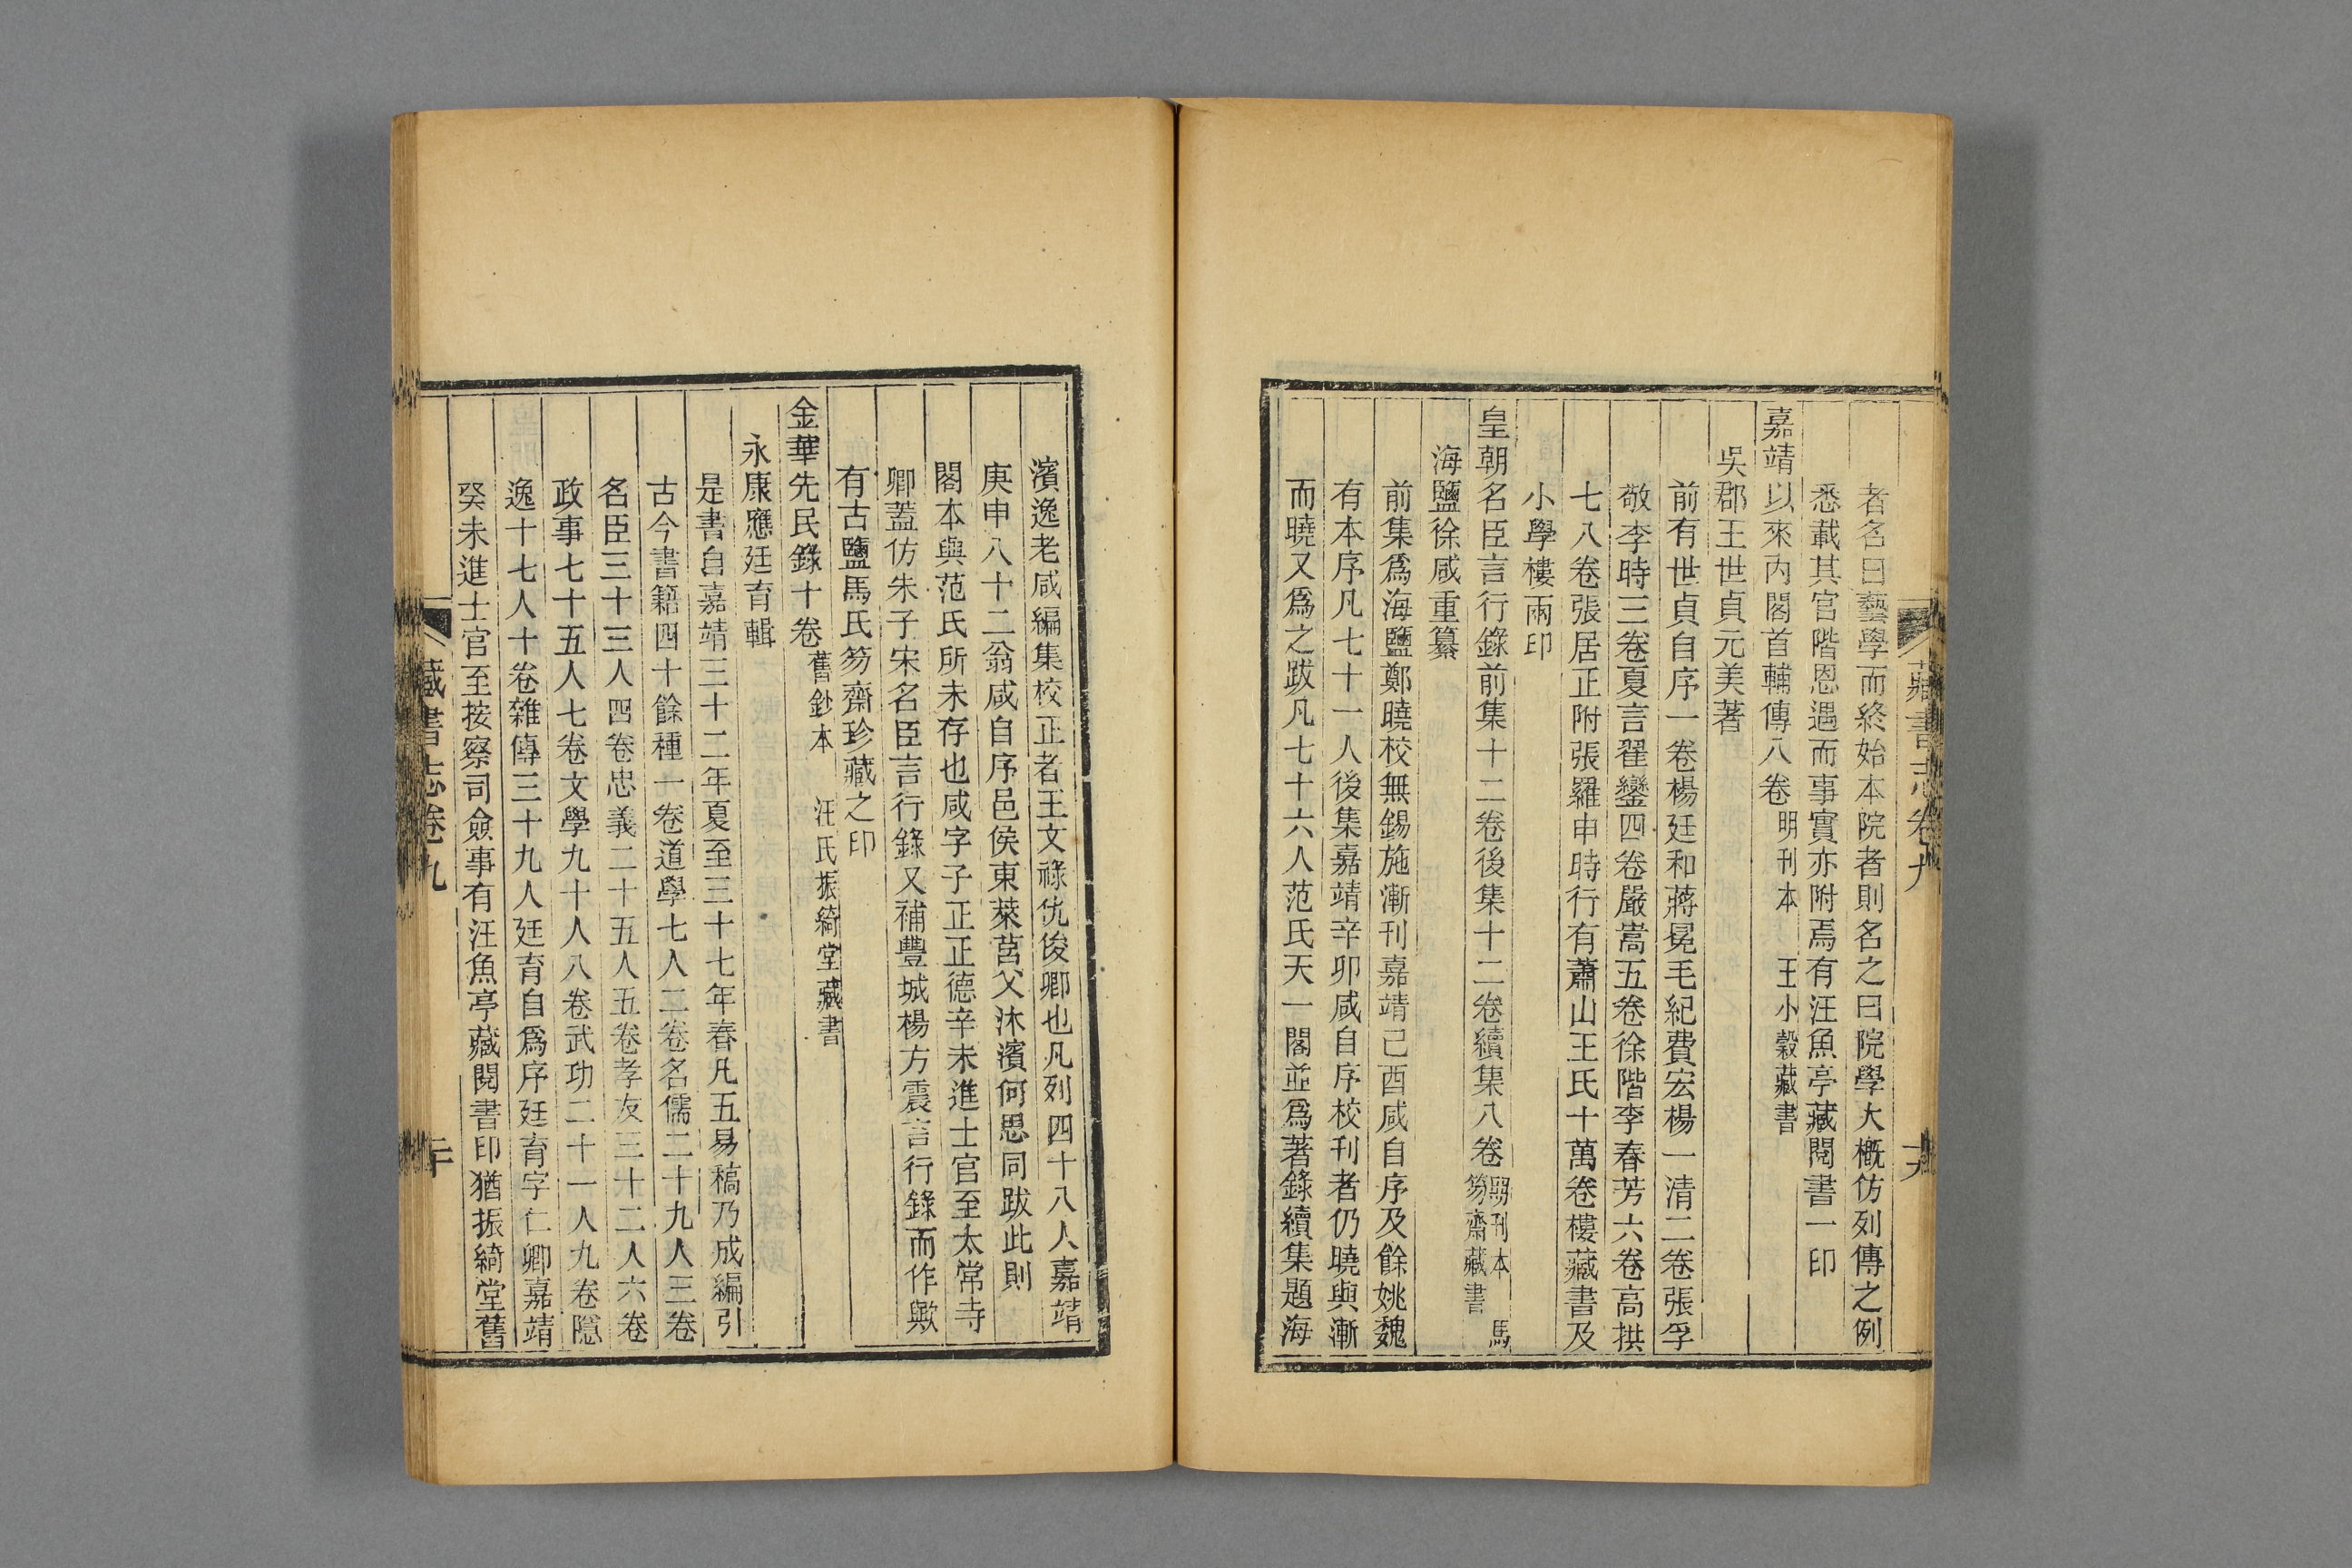 者名曰藝學而終始本院者則名之曰院學大槪仿列傳之例
悉載其官階恩遇而事實亦附焉有汪魚亭藏閱書一印
嘉靖以來內閣首輔傳八卷 明刊本 王小穀藏書
吳郡王世貞元美著
前有世貞自序一卷楊廷和蔣冕毛紀費宏楊一清二卷張孚
敬李時三卷夏言翟鑾四卷嚴嵩五卷徐階李春芳六卷高拱
七八卷張居正附張羅申時行有蕭山王氏十萬卷樓藏書及
小學樓兩印
皇朝名臣言行錄前集十二卷後集十二卷續集八卷 明刊本 馬笏齋藏書
海鹽徐咸重纂
前集爲海鹽鄭曉校無錫施漸刊嘉靖己酉咸自序及餘姚魏
有本序凡七十一人後集嘉靖辛卯咸自序校刊者仍曉與漸
而曉又爲之跋凡七十六人范氏天一閣並爲著錄續集題海
藏書志卷九
濱逸老咸編集校正者王文祿仇俊卿也凡列四十八人嘉靖
庚申八十二翁咸自序邑侯東萊莒父沐濱何思同跋此則
閣本與范氏所未存也咸字子正正德辛未進士官至太常寺
卿蓋仿朱子宋名臣言行錄又補豐城楊方震言行錄而作歟
有古鹽馬氏笏齋珍藏之印
金華先民錄十卷 舊鈔本 汪氏振綺堂藏書
永康應廷育輯
是書自嘉靖三十二年夏至三十七年春凡五易稿乃成編引
古今書籍四十餘種一卷道學七人二卷名儒二十九人三卷
名臣三十三人四卷忠義二十五人五卷孝友三十二人六卷
政事七十五人七卷文學九十人八卷武功二十一人九卷隱
逸十七人十卷雜傳三十九人廷育自爲序廷育字仁卿嘉靖
癸未進士官至按察司僉事有汪魚亭藏閱書印猶振綺堂舊
藏書志卷九